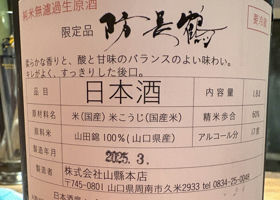 純米無濾過生原酒
限定品 防長鶴
要冷蔵
柔らかな香りと、酸と甘味のバランスのよい味わい。
キレがよく、すっきりした後口。
品目 日本酒 内容量 1.8L
原材料名 米(国産) 米こうじ(国産米) 精米歩合 60%
原料米 山田錦100%(山口県産) アルコール分 17度
製造年月 2025.3.
製造者 株式会社山縣本店
〒745-0801 山口県周南市久米2933 tel 0834-25-0048